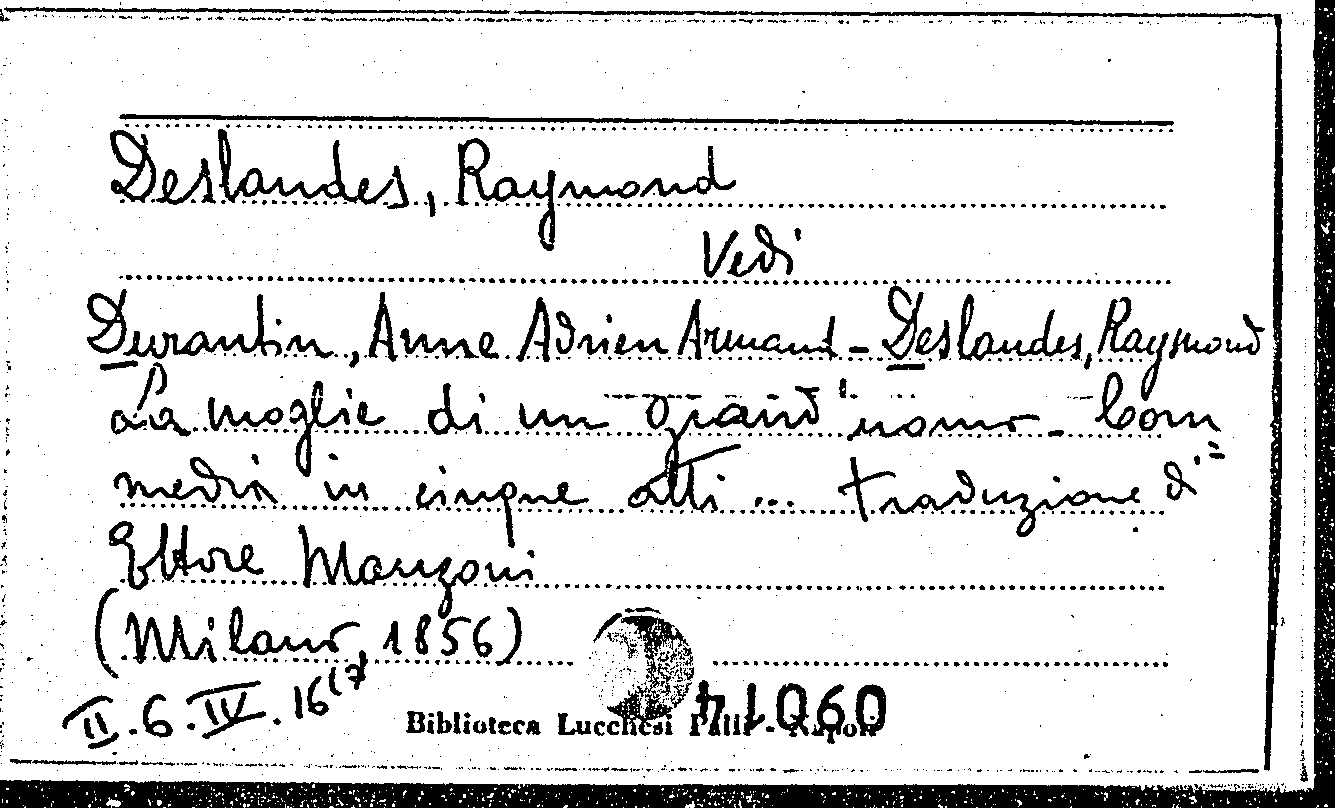 Deslandes, Raymond
Vedi
Durantin, Anne Adrien Armand - Deslandes, Raymond
La moglie di un grand'uomo - Com=
media in cinque atti ... traduzione di
Ettore Manzoni
(Milano, 1856)
II.6.IV.16(7
090144
Biblioteca Lucchesi Palli - Napoli